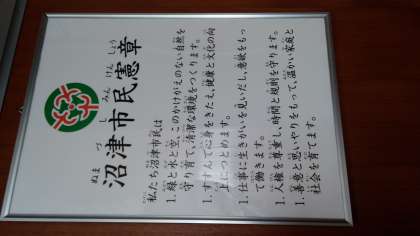 ぬまづしみんけんしょう
沼津市民憲章
私たち沼津市民は
1. 緑と水と空、このかけがえのない自然を
守り育て、清潔な環境をつくります。
1. すすんで心身をきたえ、健康と文化の向
上につとめます。
1. 仕事に生きがいを見いだし、意欲をもっ
て働きます。
1. 人権を尊重し、時間と規則を守ります。
1. 善意と思いやりをもって、温かい家庭と
社会を育てます。